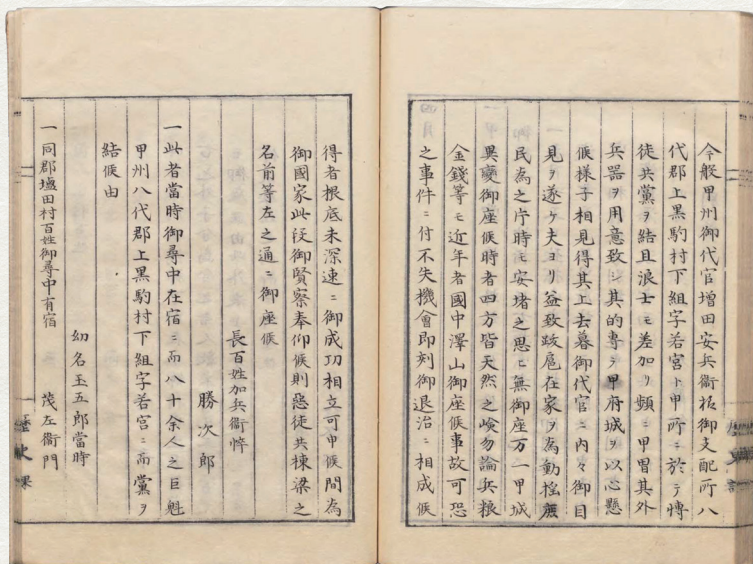 今般甲州御代官増田安兵衛様御支配所八
代郡上黒駒村下組字若宮ト申所ニ於テ博
徒共黨ヲ結且浪士モ差加リ頻ニ甲冑其外
兵器ヲ用意致シ其的専ラ甲府城ヲ以心懸
候様子相見得其上去暮御代官ニ内々御目
見ヲ遂ケ夫ヨリ益致跋扈在家ヲ為動揺
民為之片時モ安堵之思ヒ無御座万一甲城
異變御座候時者四方皆天然之嶮勿論兵粮
金錢等モ近年者國中澤山御座候事故可恐
之事件ニ付不失機會即刻御退治ニ相成候
得者根底未深速ニ御成功相立可申候間為
御國家此段御賢察奉仰候則惡徒共棟梁之
名前等左之通ニ御座候
長百姓加兵衛悴
勝次郎
一此者當時御尋中在宿ニ而八十余人之巨魁
甲州八代郡上黒駒村下組字若宮ニ而黨ヲ
結候由
幼名玉五郎當時
一同郡塩田村百姓御尋中有宿 茂左衛門